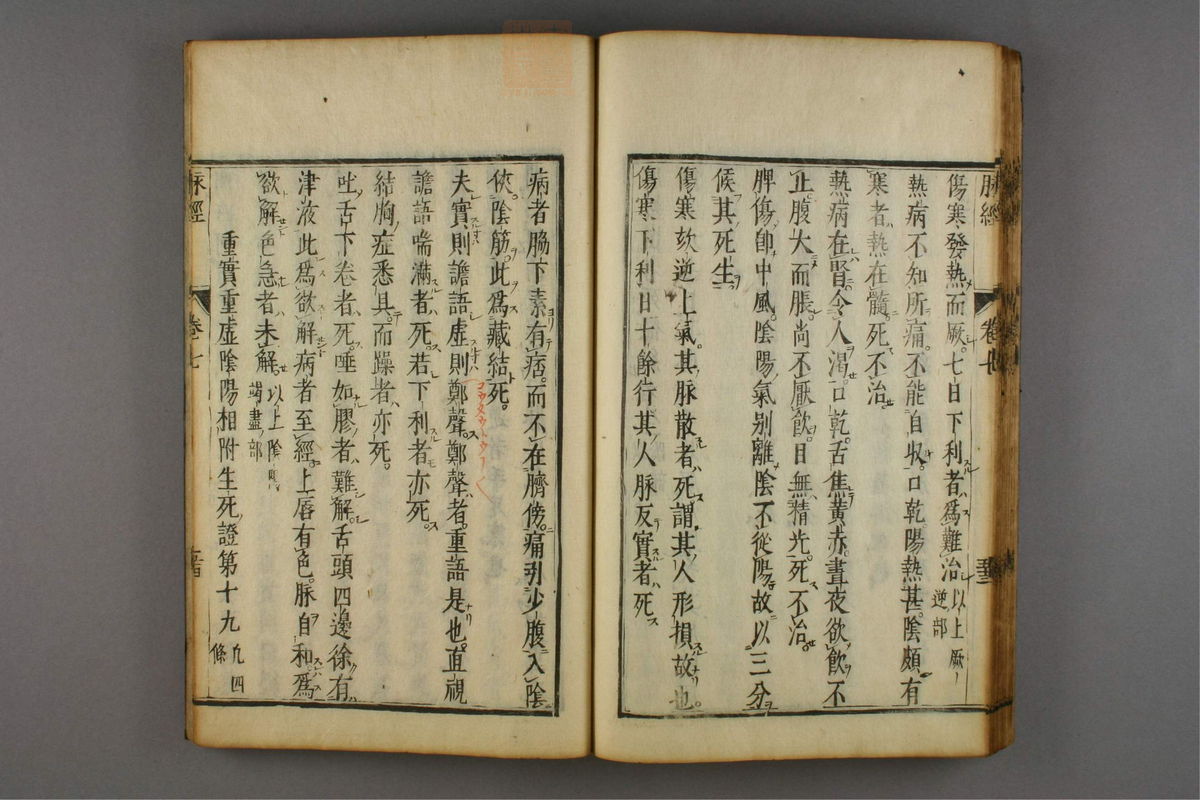 脉經 卷七
傷寒發熱而厥七日下利者爲難治 以上厥逆部
熱病不知所痛不能自收口乾陽熱甚陰頗有
寒者熱在髓死不治
熱病在腎令人渴口乾舌焦黃赤晝夜欲飲不
止腹大而脹尚不厭飲目無精光死不治
脾傷即中風陰陽氣别離陰不從陽故以三分
候其死生
傷寒欬逆上氣其脉散者死謂其人形損故也
傷寒下利日十餘行其人脉反實者死
病者脇下素有痞而不在臍傍痛引少腹入陰
俠陰筋此爲藏結死
夫實則譫語虛則鄭聲鄭聲者重語是也直視
譫語喘滿者死若下利者亦死
結胸症悉具而躁者亦死
吐舌下卷者死唾如膠者難解舌頭四邊徐有
津液此爲欲解病者至經上唇有色脉自和爲
欲解色急者未解 以上陰陽竭盡部
重實重虛陰陽相附生死證第十九 凡四條
脉經 卷七